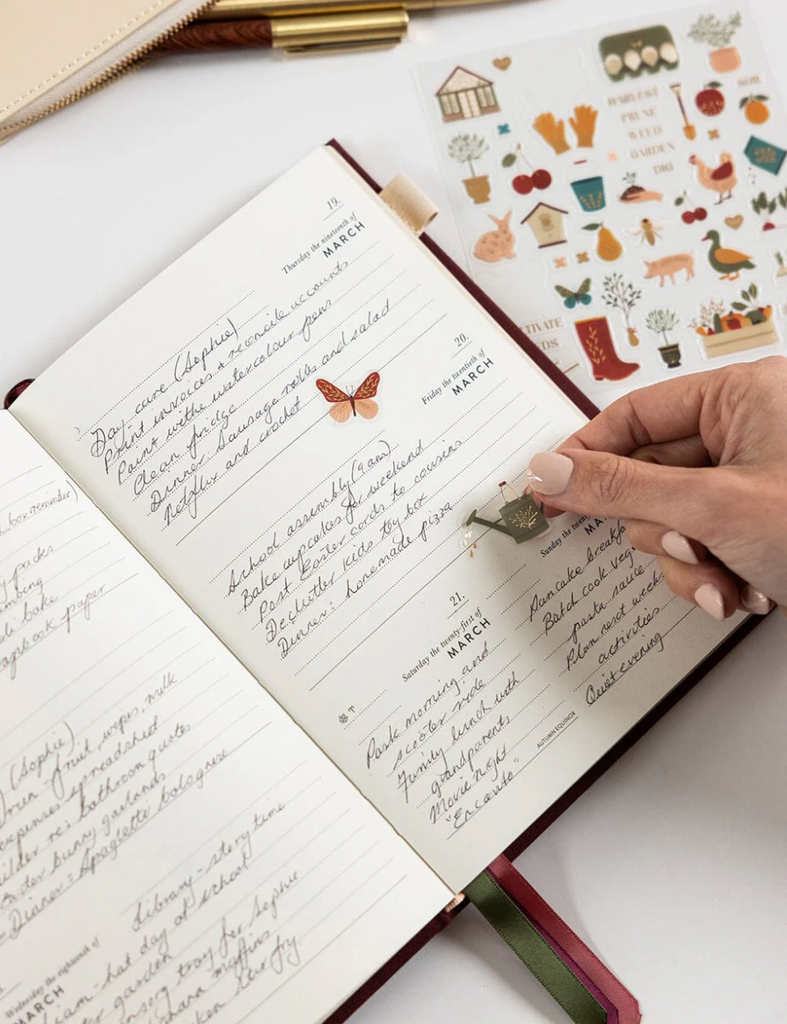 box reminder)
packs
bake
scrapbook paper
(Sophie)
fruit, wipes, milk
expenses spreadsheet
builder re: bathroom quotes
Easter bunny garlands
Dinner: Spaghetti bolognese
Wednesday the eighteenth of
MARCH
Library - story time
hat day at school
garden
sensory tray for Sophie
muffins
stir fry
19.
Thursday the nineteenth of
MARCH
Day-care (Sophie)
Print invoices & reconcile accounts
Paint with watercolour pens
Clean fridge
Dinner: Sausage rolls and salad
Netflix and crochet
20.
Friday the twentieth of
MARCH
School assembly (9am)
Bake cupcakes for weekend
Post Easter cards to cousins
Declutter kids toy box
Dinner: homemade pizza
21.
Saturday the twenty-first of
MARCH
Park morning and
scooter ride
Family lunch with
grandparents
Movie night
"Encanto"
Sunday the twenty
MA
Pancake breakfa
Batch cook veg
pasta sauce
Plan next week
activities
Quiet evening
AUTUMN EQUINOX
HARVEST
PRUNE
WEED
GARDEN
DIG